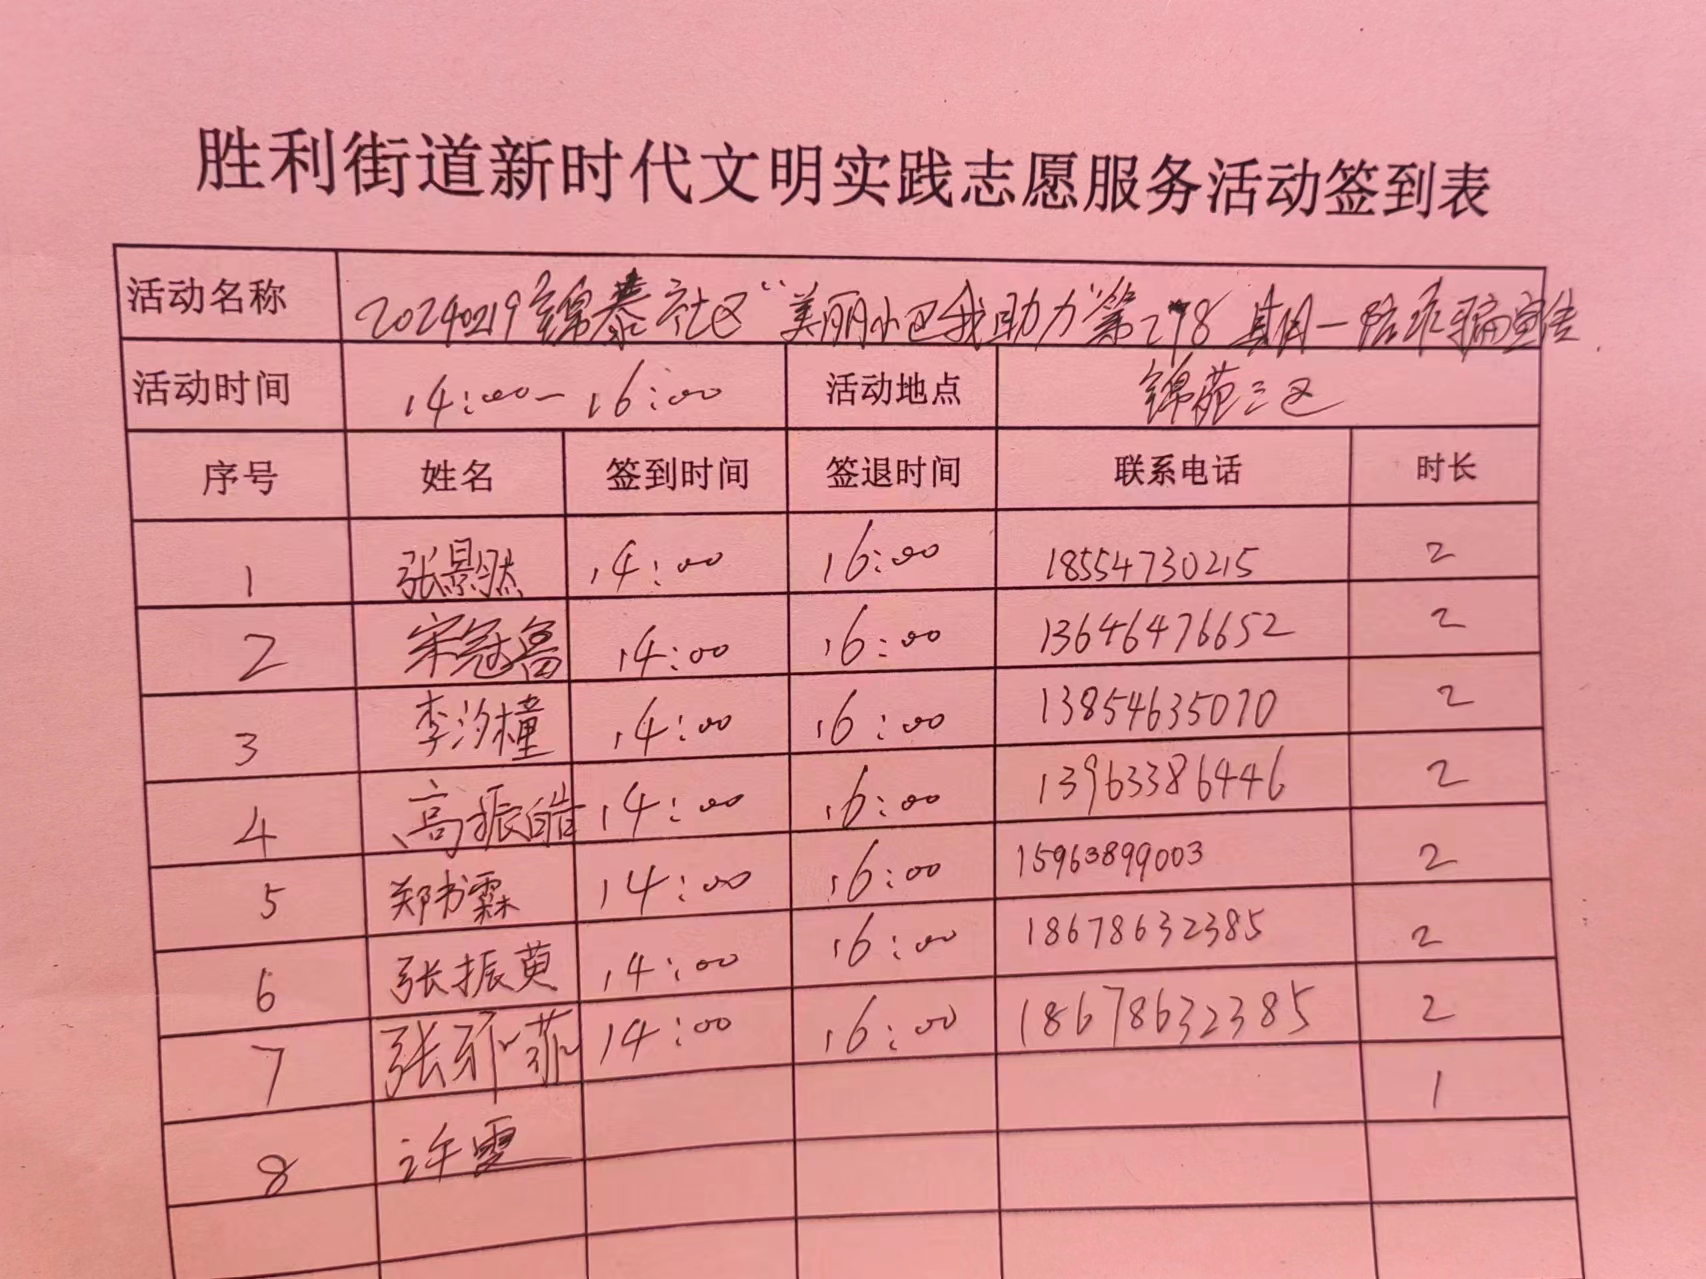 胜利街道新时代文明实践志愿服务活动签到表
活动名称 20240219锦泰社区“美丽小区我助力”第298期周一防诈骗宣传
活动时间 14:00-16:00 活动地点 锦苑三区
序号 姓名 签到时间 签退时间 联系电话 时长
1 张景然 14:00 16:00 18554730215 2
2 宋冠 14:00 16:00 13646476652 2
3 李汐橦 14:00 16:00 13854635070 2
4 高振皓 14:00 16:00 13963386446 2
5 郑书霖 14:00 16:00 15963899003 2
6 张振萸 14:00 16:00 18678632385 2
7 张菲 14:00 16:00 18678632385 2
8 许雯 1